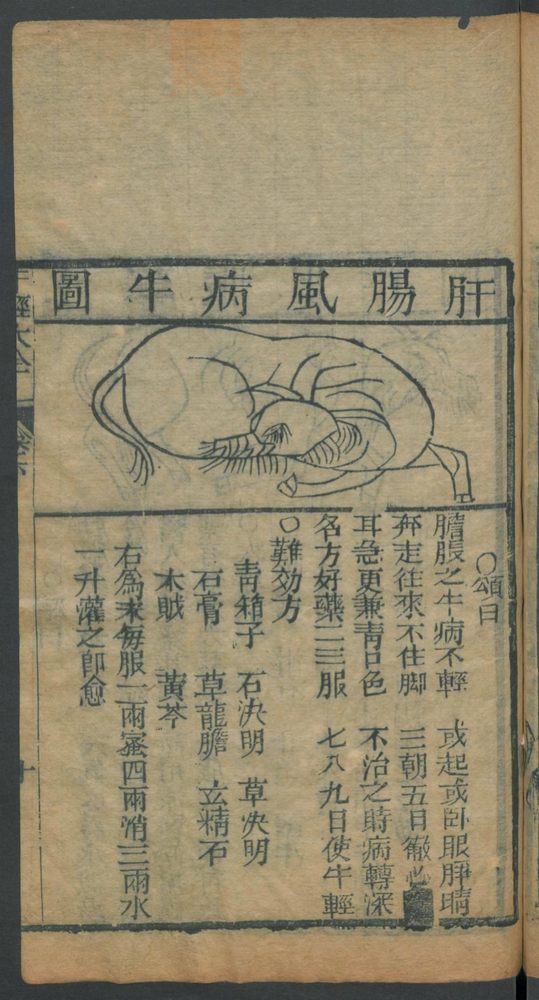 肝腸風病牛圖
○頌曰
膽脹之牛病不輕 或起或卧眼腁晴
奔走往來不住脚 三朝五日徹心
耳急更兼青口色 不治之時病轉深
名方好藥二三服 七八九日使牛輕
○難効方
青箱子 石決明 草決明
石膏 草龍膽 玄精石
木賊 黄芩
右為末每服二兩蜜四兩硝三兩水
一升灌之即愈
經大全